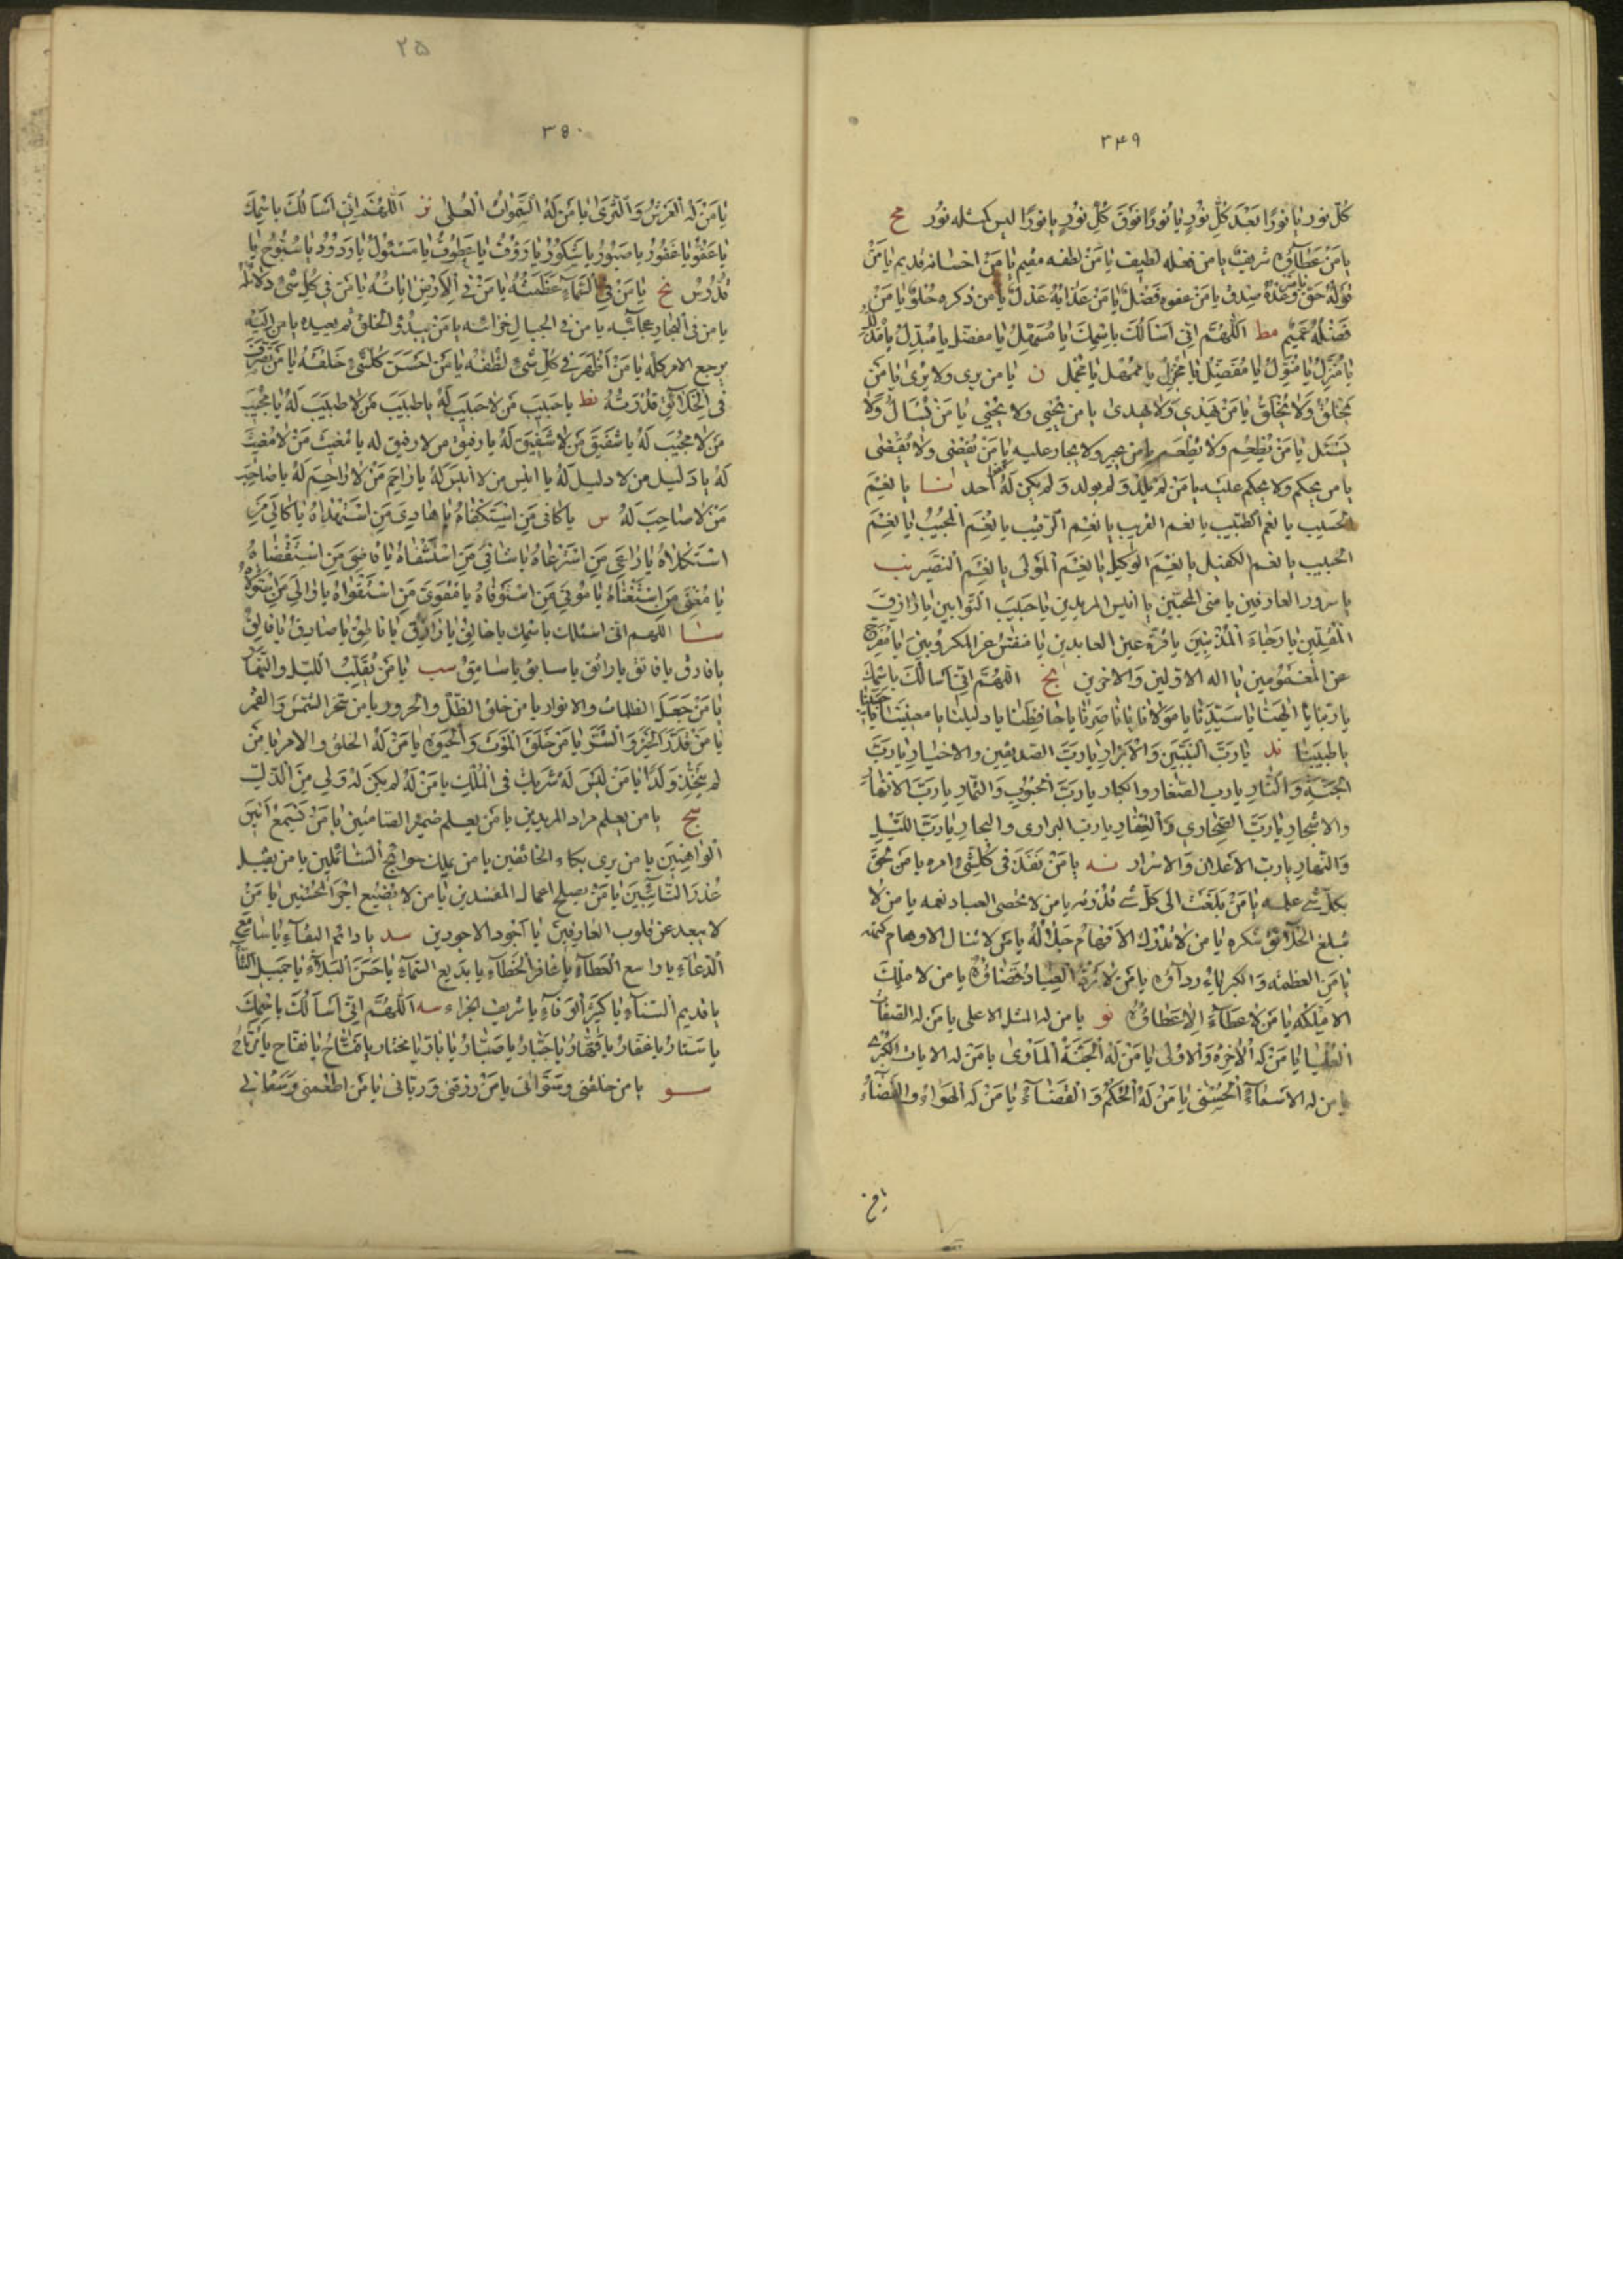 ٣٤٩
كُلّ نور يا نورًا بَعْدَ كُلِّ نُورٍ يا نُورًا فَوْقَ كُلِّ نُورٍ يا نورًا ليس كمثله نُور مح
يا مَنْ عَطآؤه شريفٌ يا من فعله لطيف يا مَنْ لطفه مقيم يا مَنْ احسانه قديم يا مَنْ
قَولُهُ حَقّ يا مَنْ وَعْدُهُ صِدْق يا مَنْ عفوه فَضْلٌ يا مَنْ عَذابُهُ عَدْلٌ يا من ذكره حُلوٌ يا مَنْ
فَضْلُهُ عَميمٌ مط اَللّٰهُمَّ اِنّى اَسْاَلُكَ باسْمِكَ يا مُسَهِّلُ يا مفصّل يا مُبَدِّلُ يا مُذَلِّلُ
يا مُنَزِّلُ يا مُنَوِّلُ يا مُفْضِلُ يا مُجْزِلُ يا مُمْهل يا مُجْمل ن يا من يرى ولا يُرى يا مَن
يَخلُقُ وَلا يُخلَقُ يا مَنْ يَهْدي وَلا يهدى يا من يُحْيي ولا يحيى يا مَنْ يُسْأَلُ وَلا
يَسْئَل يا مَنْ يُطْعِمُ ولا يُطْعَم يا من يجير ولا يجار عليه يا مَنْ يَقْضى ولا يُقْضٰى
يا من يحكم ولا يحكم عليه يا مَنْ لَمْ يَلِدْ وَلَم يولد وَلم يكن لَهُ كفوا احد نا يا نِعْمَ
الحسيب يا نِعْمَ الطّبيب يا نعم القريب يا نِعْم الرّقيب يا نِعْمَ المُجيبُ يا نِعْمَ
الحبيب يا نعم الكفيل يا نِعْمَ الوَكيل يا نِعْمَ المَوْلى يا نِعْمَ النصَير نب
يا سرور العارفين يا منى المحبّين يا انيس المريدين يا حَبيبَ التّوابين يا رازِقَ
المُقِلّين يا رَجاءَ المُذنِبينَ يا قُرّة عين العابدين يا منفّس عن المكروبينَ يا مُفَرِّج
عن المَغْمُومين يا اله الاوّلين وَالاخرين نج اللّهُمَّ اِنّى اَسْالُكَ باسْمِكَ
يا رَبَّنا يا الهَنا يا سَيِّدَنا يا مَوْلانا يا ناصِرنا يا حافِظنا يا دليلنا يا معينَنا يا حَبيبَنا
يا طبيبَنا ند يا رَبّ النبيّين وَالابْرار يا رَبَّ الصّديقين والاخيار يا رَبَّ
الجَنّةِ وَالنّارِ يا رب الصّغار والكبار يا رَبّ الحُبُوب وَالثّمار يا رَبّ الانهار
والاشجار يا رَبَّ الصّحاري وَالقِفار يا ربّ البراري والبحار يا رَبَّ اللّيْل
وَالنّهار يا ربّ الاعلان وَالاسْرار نه يا مَنْ نَفَذَ فى كُلّ شَيْءٍ امره يا مَن لحِقَ
بكلّ شئ علمه يا مَنْ بَلَغَتْ الى كلّ شئ قُدْرته يا من لا تحصى العباد نعمه يا من لا
تبلغ الخَلائقُ شكره يا من لا تُدْرك الاَفهامُ جَلالَهُ يا مَن لا تنال الاوهام كنهه
يا مَنِ العظمة والكبرياءُ ردآؤه يا مَنْ لا تَرُدُّ العِبادُ قَضاؤُهُ يا من لا ملك
الا مُلْكُه يا مَنْ لا عَطآءَ اِلّا عَطاؤُهُ نو يا من له المثل الاعلى يا مَن له الصّفات
العُلْيا يا مَنْ لَه الاخِرَةُ وَالاُولى يا مَنْ لَهُ الجَنَّةُ المَاوى يا مَنْ له الايات الكُبْرى
يا من له الاَسْماءُ الحُسْنى يا مَنْ لَهُ الحُكمُ وَالقَضآءُ يا مَنْ لَه الهَواءُ والفَضاءُ
٢٥
٣٥٠
يا مَنْ له العَرْشُ وَالثّرى يا مَن لَهُ السّمٰواتُ العُلى نز اَللّهُمَّ اِنّى اَسْاَلُكَ باسْمِكَ
يا عَفُوُّ يا غَفُورُ يا صَبُورُ يا شَكُورُ يا رَؤُفُ يا عَطُوفُ يا مَسْئولُ يا وَدُودُ يا سُبّوحُ يا
قُدّوسُ نح يا مَنْ فِى السّماءِ عَظَمَتُهُ يا مَنْ فِى الاَرْضِ اياتُهُ يا مَن فى كُلّ شَىْ دَلائلُهُ
يا من فى البحار عجائبه يا من فى الجبال خزائنه يا مَنْ يَبْدُؤ الخلقَ ثم يعيده يا من اِليه
يرجع الامر كلّه يا مَنْ اَظْهَرَ فى كلّ شَىْءٍ لطْفَهُ يا مَن اَحْسَنَ كُلّ شَىْءٍ خَلْقَهُ يا مَن تصرّف
فى الخَلائق قُدْرَتُهُ نط يا حَبيبَ مَن لا حَبيبَ لَهُ يا طبيبَ مَن لا طبيبَ لَهُ يا مُجيبَ
مَن لا مجيبَ لَهُ يا شفيقَ مَن لا شَفيقَ لَهُ يا رفيق من لا رفيق له يا مُغيثَ مَنْ لا مُغيثَ
لَهُ يا دَليل من لا دليل لَهُ يا انيس من لا انيسَ لَهُ يا رٰاحِمَ مَنْ لا رٰاحِمَ لَهُ يا صاحِبَ
مَن لا صاحِبَ لَهُ س يا كافى مَنِ اسْتَكْفاهُ يا هادِىَ مَنِ اسْتَهْداهُ يا كالِئَ مَنِ
اسْتَكْلاهُ يا راعىَ مَنِ اسْتَرْعاهُ يا شافِىَ مَنِ اسْتَشْفاهُ يا قاضِىَ مَنِ اسْتَقْضاهُ
يا مُغْنِىَ مَنِ اسْتَغْناهُ يا مُوفِىَ مَنِ اسْتَوْفاهُ يا مُقَوّىَ مَنِ اسْتَقْواهُ يا وَلىَّ مَنِ اسْتَولاهُ
سا اللهم انّى اسئلك باسْمِك يا خالِقُ يا رازِقُ يا ناطِقُ يا صادِقُ يا فالِقُ
يا فارق يا فاتق يا راتق يا سابق يا سامِقُ سب يا مَنْ يُقَلِّبُ اللّيل والنّهار
يا مَنْ جَعَلَ الظلمات والانوار يا من خلق الظّلّ والحرور يا من سخّر الشّمْسَ وَالقَمَر
يا مَنْ قَدَّرَ الخَيْرَ وَالشّرَّ يا مَنْ خَلَقَ المَوْتَ وَالحَيٰوةَ يا مَنْ لَهُ الخلقُ والامر يا مَنْ
لم يَتّخِذْ وَلَدًا يا مَنْ لَيْسَ لَهُ شريك فى المُلْكِ يا مَنْ لَمْ يكن لَهُ وَلى مِنَ الذّل
سج يا من يعلم مراد المريدين يا مَن يعلم ضمير الصّامتين يا مَنْ يَسْمَعُ اَنينَ
الواهِنينَ يا من يرى بكاء الخائفين يا من يملك حوائج السّائلين يا من يقبل
عُذْرَ التّائِبينَ يا مَنْ لا يصلح اعمال المفسدين يا من لا يُضيع اجْرَ المحسنين يا مَنْ
لا يبعد عن قلوب العارفين يا اَجْوَد الاجودين سد يا دائم البقاء يا سامِعَ
الدّعآءِ يا واسع العَطآءِ يا غافر الخَطآءِ يا بَديع السّمآءِ يا حَسَنَ البَلآءِ يا جَميل الثّناءِ
يا قديم السّنآءِ يا كثيرَ الوَفآءِ يا شريف الجزاء سه اَللّهُمَّ اِنّى اَسْاَلُكَ باسْمِكَ
يا سَتّارُ يا غَفّارُ يا قَهّارُ يا جَبّارُ يا صَبّارُ يا بارّ يا مختار يا فَتّاحُ يا نَفّاح يا مُرتاحُ
سو يا من خلقنى وسَوّانى يا مَنْ رزقنى ورَبّانى يا مَن اطعمنى وَسَقانى